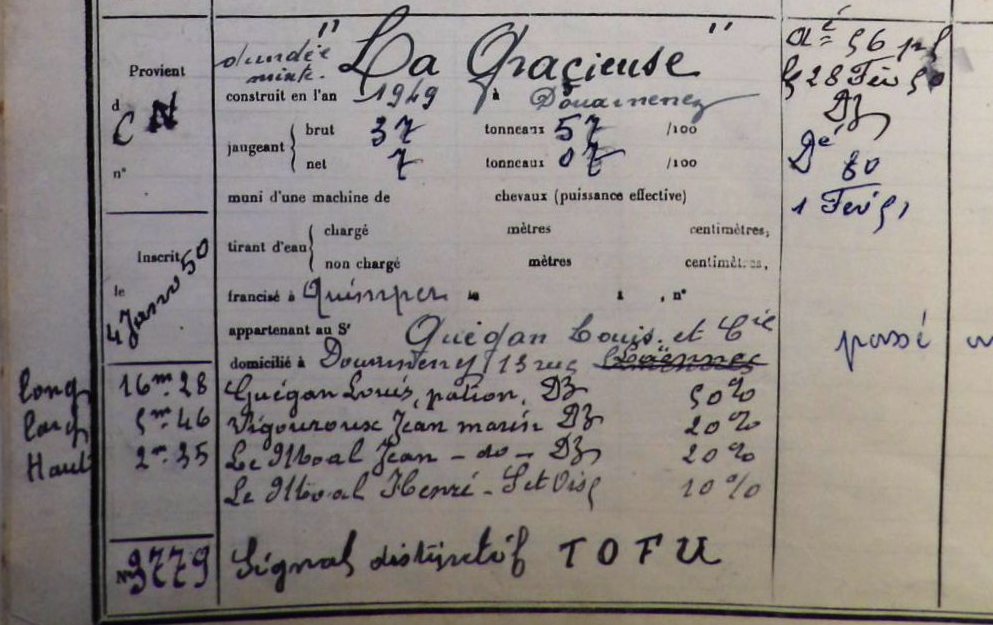 Provient
d
CN
n°
dundée
mixte.
"La Gracieuse"
construit en l'an 1949 à Douarnenez
jaugeant { brut 37 tonneaux 57 /100
net 7 tonneaux 07 /100
muni d'une machine de chevaux (puissance effective)
tirant d'eau { chargé mètres centimètres,
non chargé mètres centimètres,
francisé à Quimper le à , n°
appartenant au Sr Guégan Louis et Cie
domicilié à Douarnenez 13 rue Laënnec
Inscrit
le
4 Janv 50
long 16m.28 Guégan Louis, patron, DZ 50%
larg 5m.46 Vigouroux Jean marin DZ 20%
Haut 2m.35 Le Moal Jean - do - DZ 20%
Le Moal Henri - 10%
N° 3779 Signal distinctif TOFU
Aé = 56
28 Fév 50
DZ
Dé 80
1 Fév 51
passé